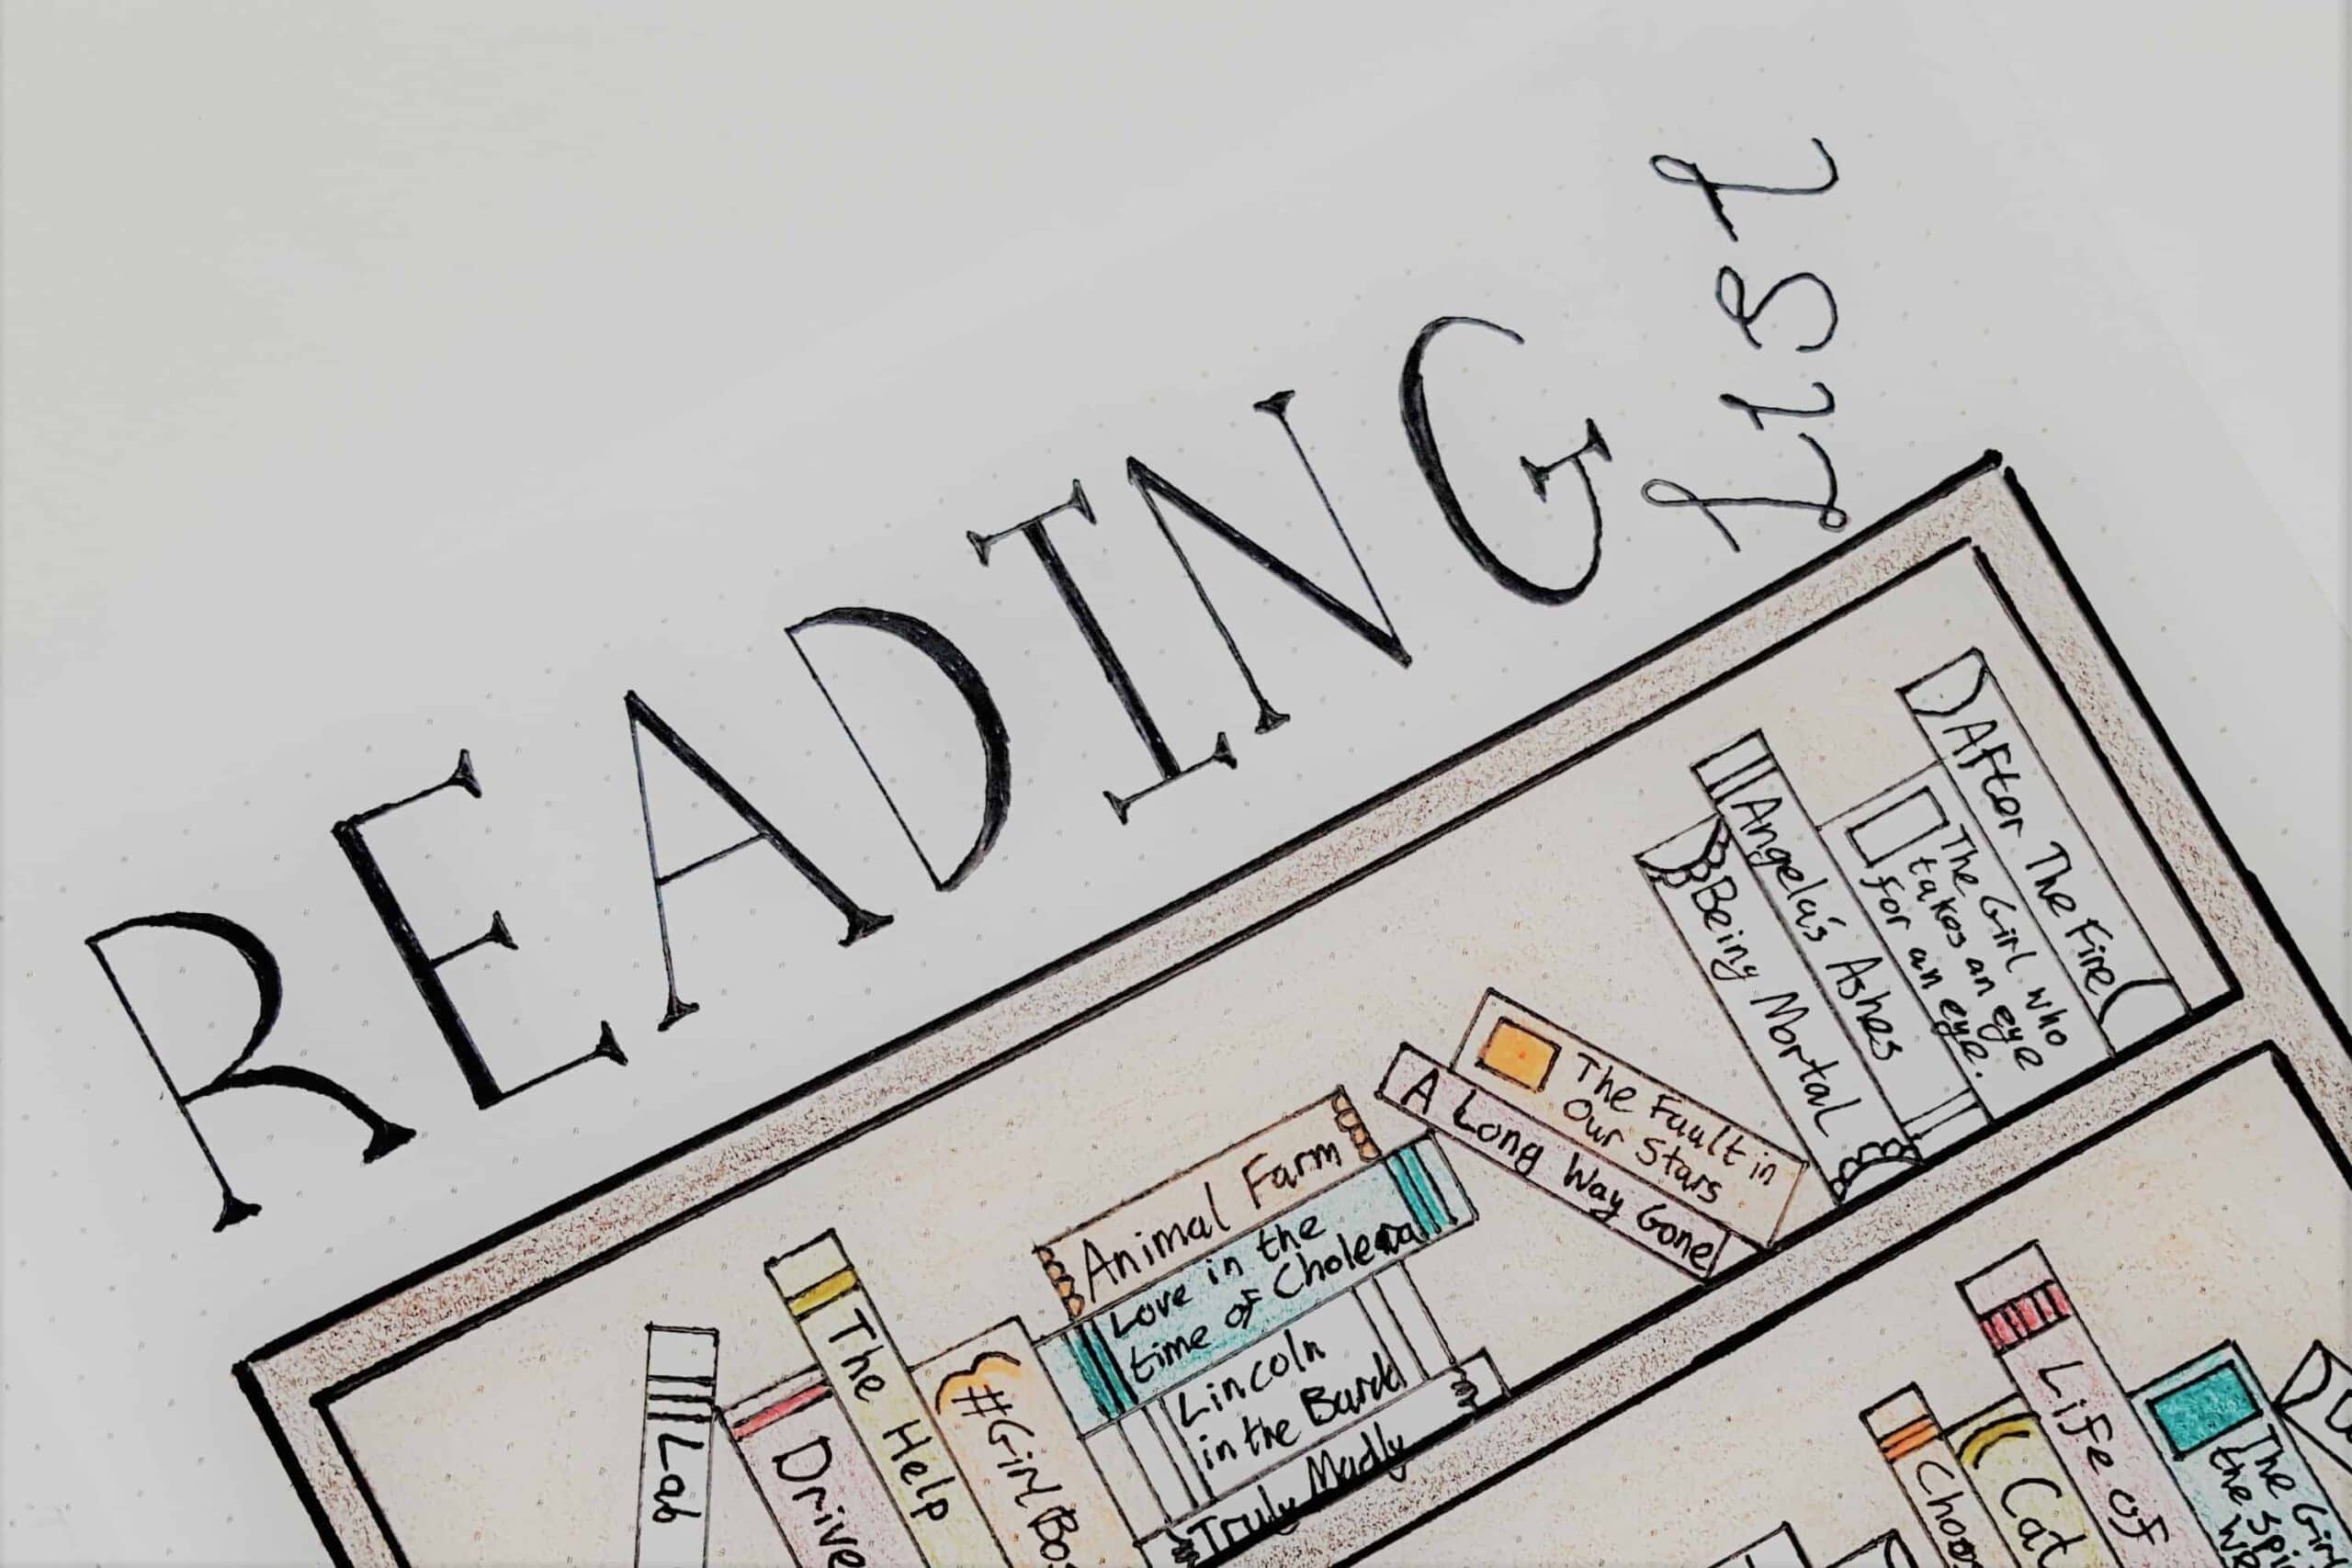 READING
List
Lab
Drive
The Help
#GirlBos
Animal Farm
Love in the
time of Cholera
Lincoln
in the Bardo
Truly Madly
A Long Way Gone
The Fault in
Our Stars
Being Mortal
Angela's Ashes
The Girl who
takes an eye
for an eye.
After The Fire
Choo
Cat
Life of
The Gir
the Spi
We